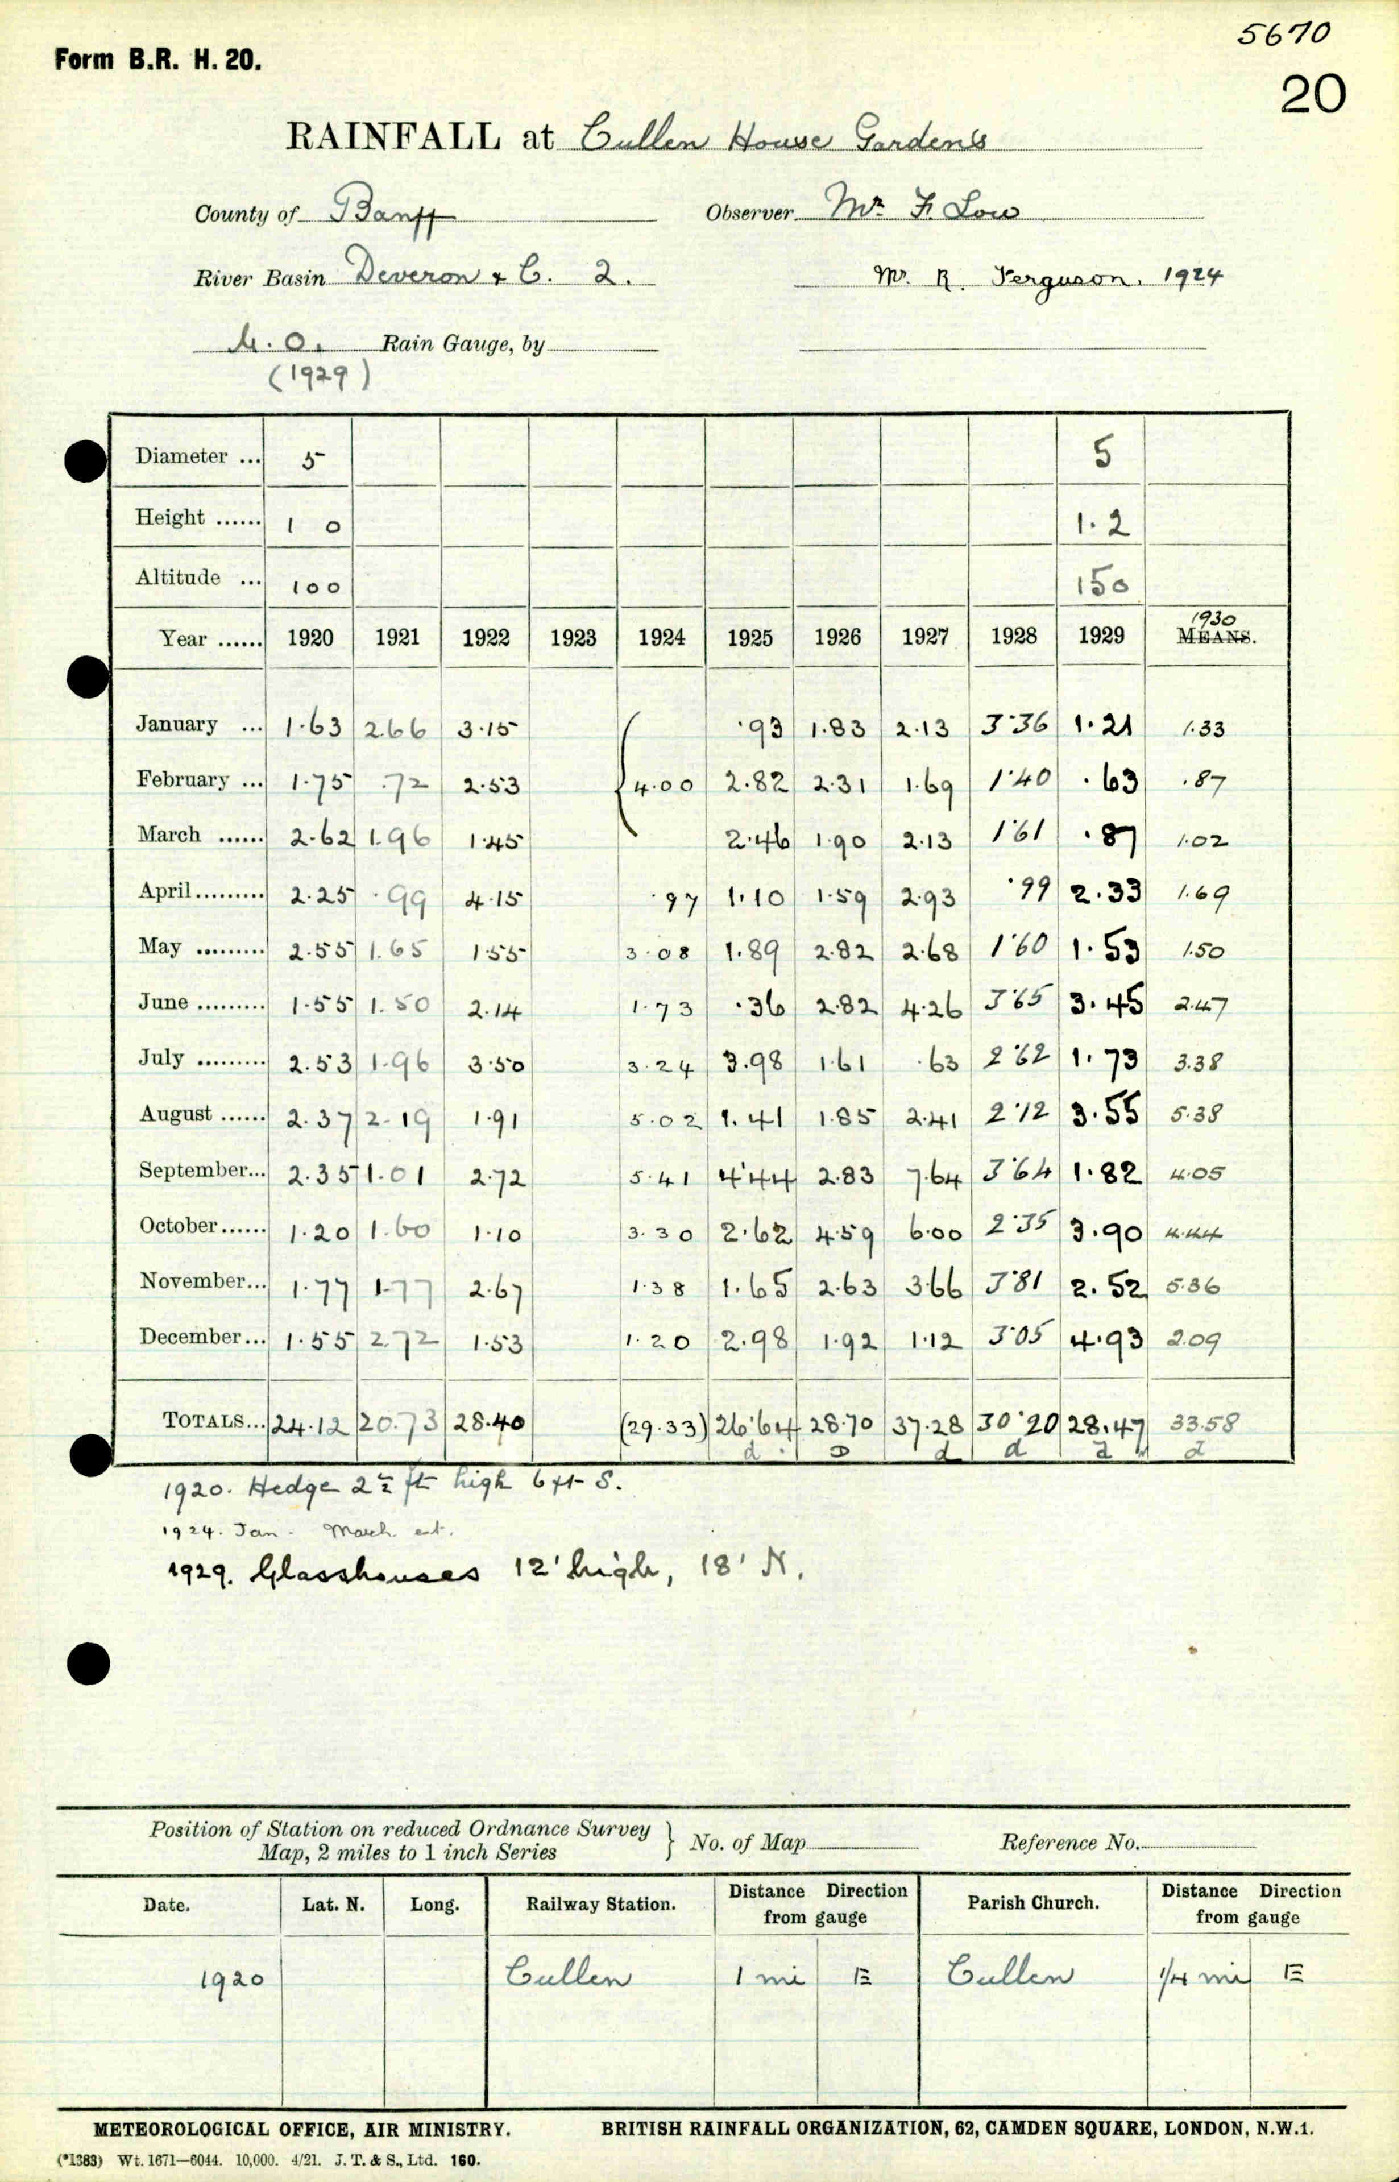 5670
Form B.R. H. 20.
20
RAINFALL at Cullen House Gardens
County of Banff Observer Mr. F. Low
River Basin Deveron & C. 2. Mr. R. Ferguson. 1924
M.O. Rain Gauge, by
(1929)
Diameter ... 5 5
Height ...... 1 0 1.2
Altitude ... 100 150
1930
Year ...... 1920 1921 1922 1923 1924 1925 1926 1927 1928 1929 MEANS.
January ... 1.63 2.66 3.15 .93 1.83 2.13 3.36 1.21 1.33
February ... 1.75 .72 2.53 { 4.00 2.82 2.31 1.69 1.40 .63 .87
March ...... 2.62 1.96 1.45 2.46 1.90 2.13 1.61 .87 1.02
April......... 2.25 .99 4.15 .97 1.10 1.59 2.93 .99 2.33 1.69
May ......... 2.55 1.65 1.55 3.08 1.89 2.82 2.68 1.60 1.53 1.50
June ......... 1.55 1.50 2.14 1.73 .36 2.82 4.26 3.65 3.45 2.47
July ......... 2.53 1.96 3.50 3.24 3.98 1.61 .63 2.62 1.73 3.38
August ...... 2.37 2.19 1.91 5.02 1.41 1.85 2.41 2.12 3.55 5.38
September... 2.35 1.01 2.72 5.41 4.44 2.83 7.64 3.64 1.82 4.05
October...... 1.20 1.60 1.10 3.30 2.62 4.59 6.00 2.35 3.90 4.44
November... 1.77 1.77 2.67 1.38 1.65 2.63 3.66 3.81 2.52 5.36
December... 1.55 2.72 1.53 1.20 2.98 1.92 1.12 3.05 4.93 2.09
TOTALS... 24.12 20.73 28.40 (29.33) 26.64 28.70 37.28 30.20 28.47 33.58
d D d d d d
1920. Hedge 2½ ft high 6 ft S.
1924. Jan - March est.
1929. Glasshouses 12' high, 18' N.
Position of Station on reduced Ordnance Survey
Map, 2 miles to 1 inch Series } No. of Map Reference No.
Date. Lat. N. Long. Railway Station. Distance Direction from gauge Parish Church. Distance Direction from gauge
1920 Cullen 1 mi E Cullen 1/4 mi E
METEOROLOGICAL OFFICE, AIR MINISTRY. BRITISH RAINFALL ORGANIZATION, 62, CAMDEN SQUARE, LONDON, N.W.1.
(*1383) Wt. 1671—6044. 10,000. 4/21. J. T. & S., Ltd. 160.